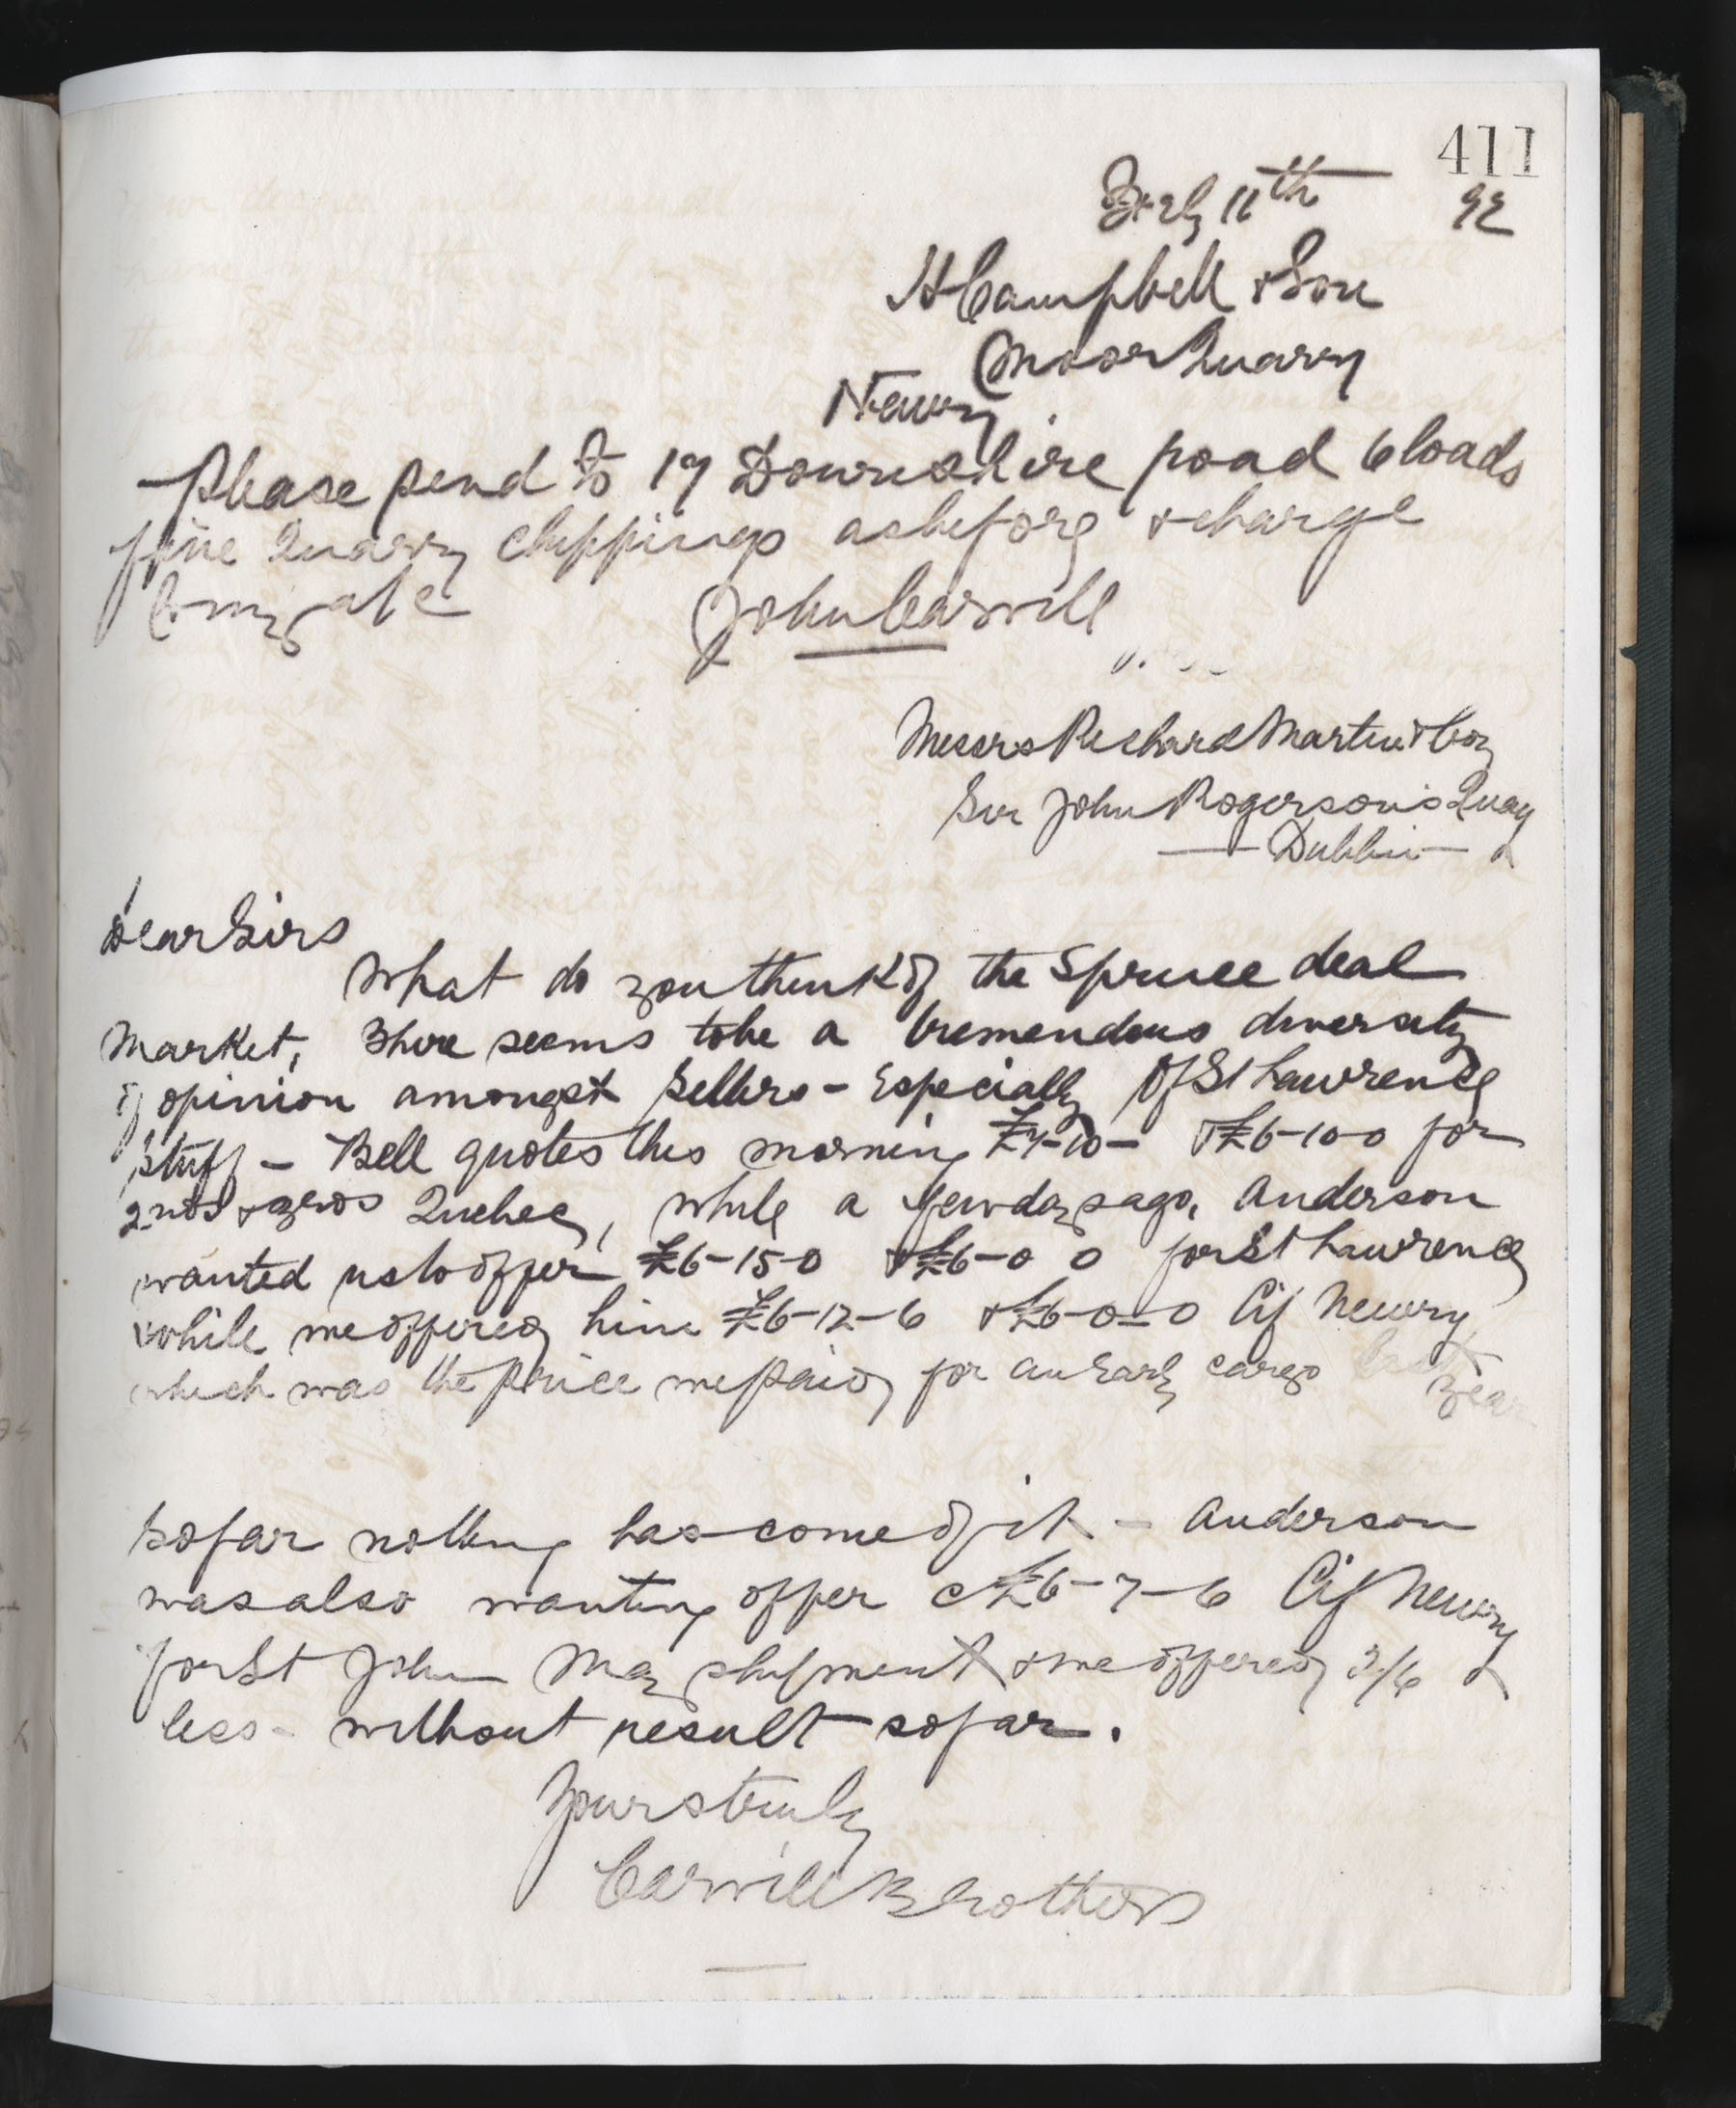 411
Feby 11th 92
H Campbell & Son
Moor Quarry
Newry
Please send to 17 Downshire road 6 loads
fine Quarry chippings as before & charge
to my a/c John Carvill
Messrs Richard Martin & Coy
Sir John Rogerson's Quay
Dublin
Dear Sirs
What do you think of the Spruce deal
Market, There seems to be a tremendous diversity
of opinion amongst Sellers - Especially of St Lawrence
stuff - Bell quotes this morning £7-10- & £6-10-0 for
2nds & 3rds Quebec, while a few days ago, Anderson
wanted us to offer £6-15-0 & £6-0 0 for St Lawrence
while we offered him £6-12-6 & £6-0-0 Cif Newry
which was the price we paid for an Early cargo last
year
so far nothing has come of it - Anderson
was also wanting offer £6-7-6 Cif Newry
for St John May shipment & we offered 2/6
less - without result so far.
Yours truly
Carvill Brothers